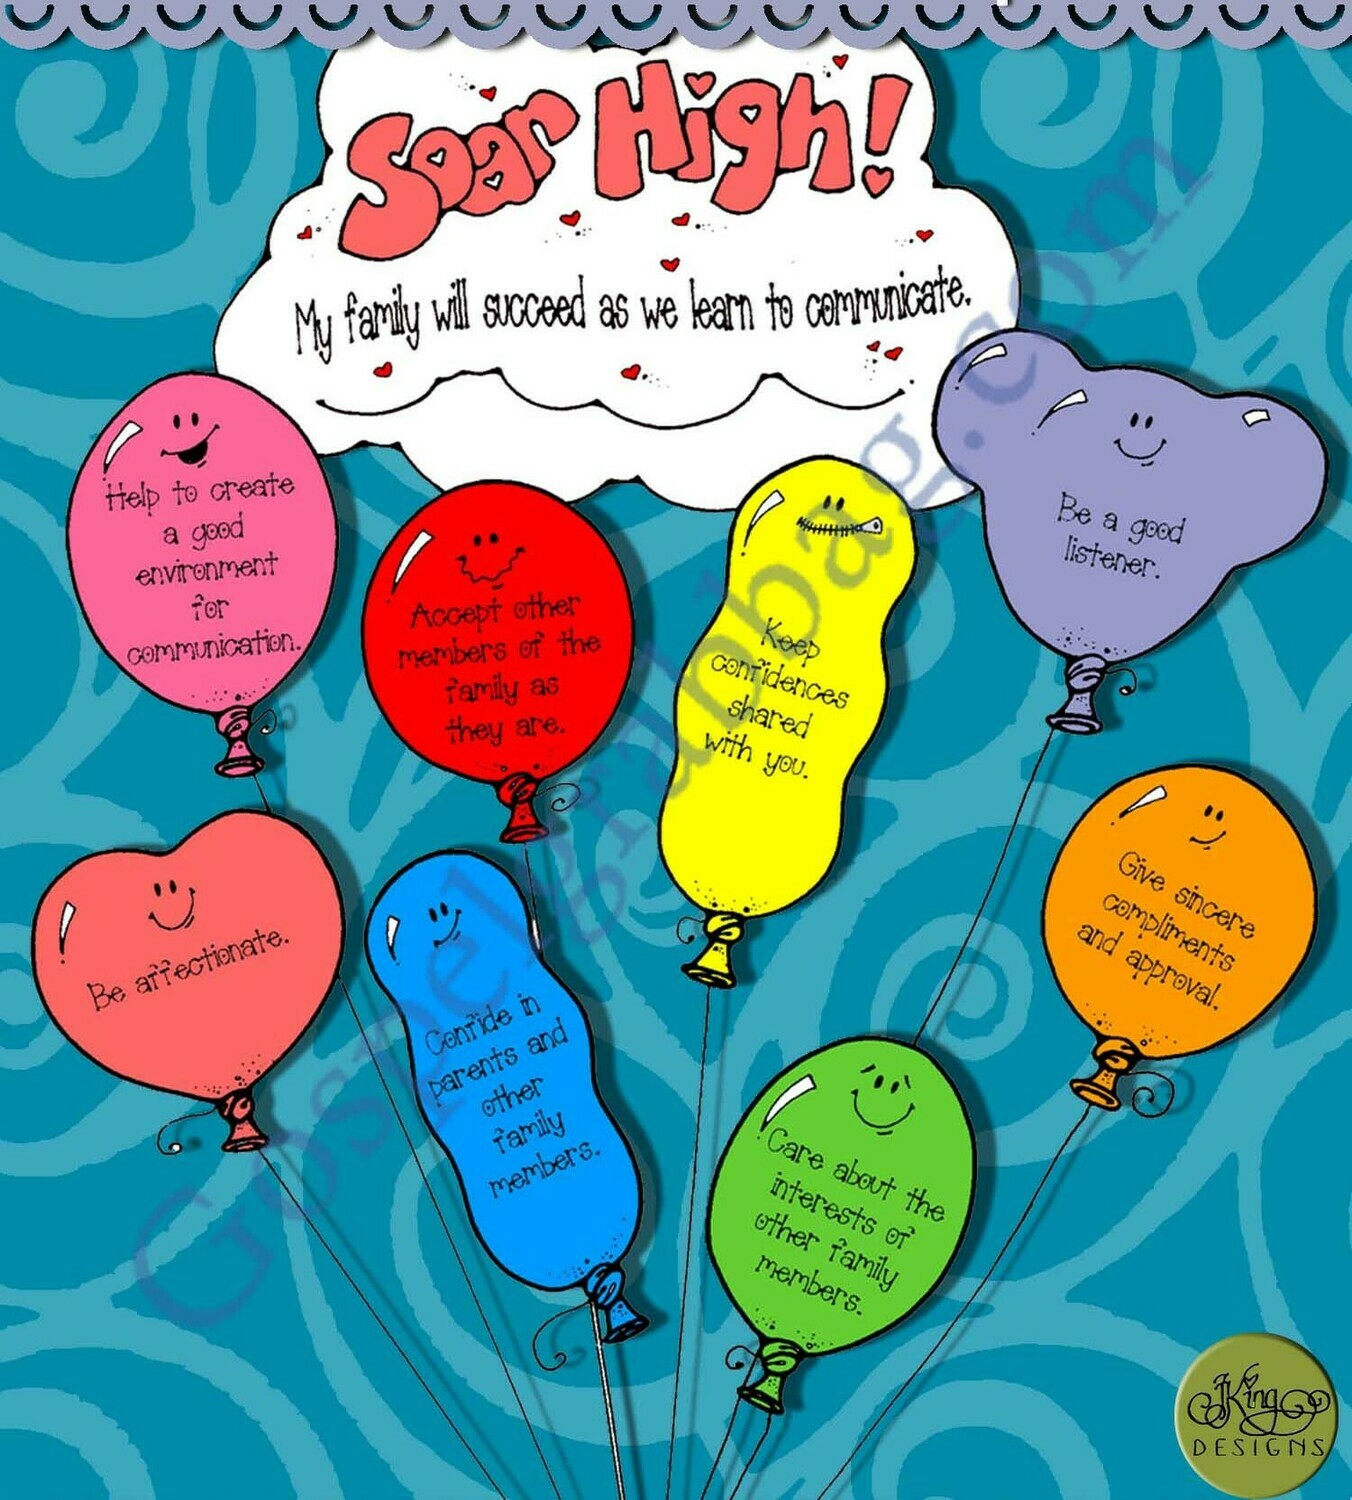 Soar High!
My family will succeed as we learn to communicate.
Help to create
a good
environment
for
communication.
Accept other
members of the
family as
they are.
Keep
confidences
shared
with you.
Be a good
listener.
Be affectionate.
Confide in
parents and
other
family
members.
Care about the
interests of
other family
members.
Give sincere
compliments
and approval.
Gospelgrabbag.com
JKing
DESIGNS